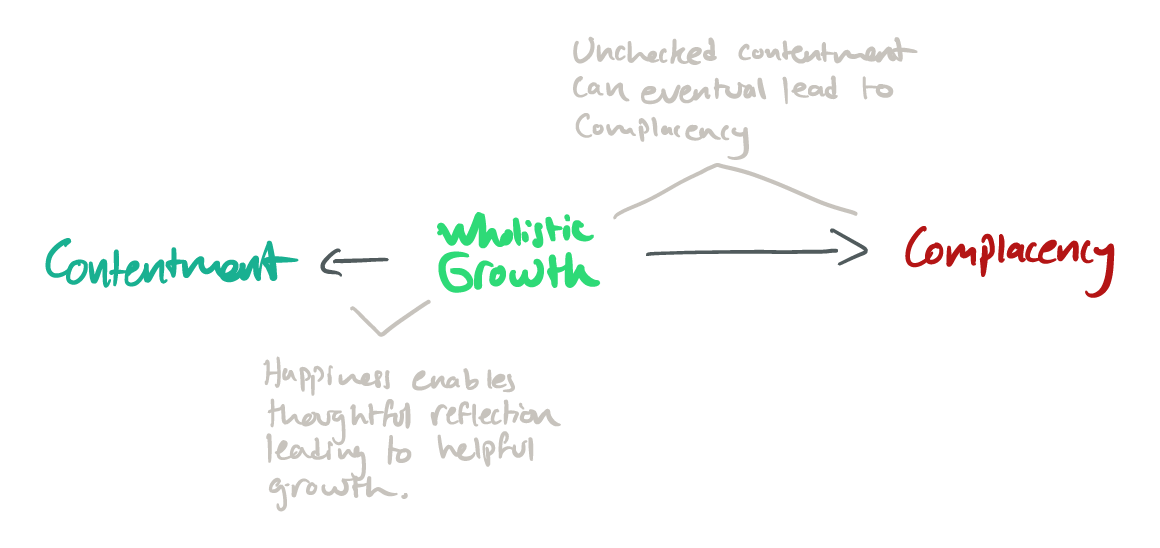 Unchecked contentment
can eventual lead to
Complacency
Contentment
Wholistic
Growth
Complacency
Happiness enables
thoughtful reflection
leading to helpful
growth.